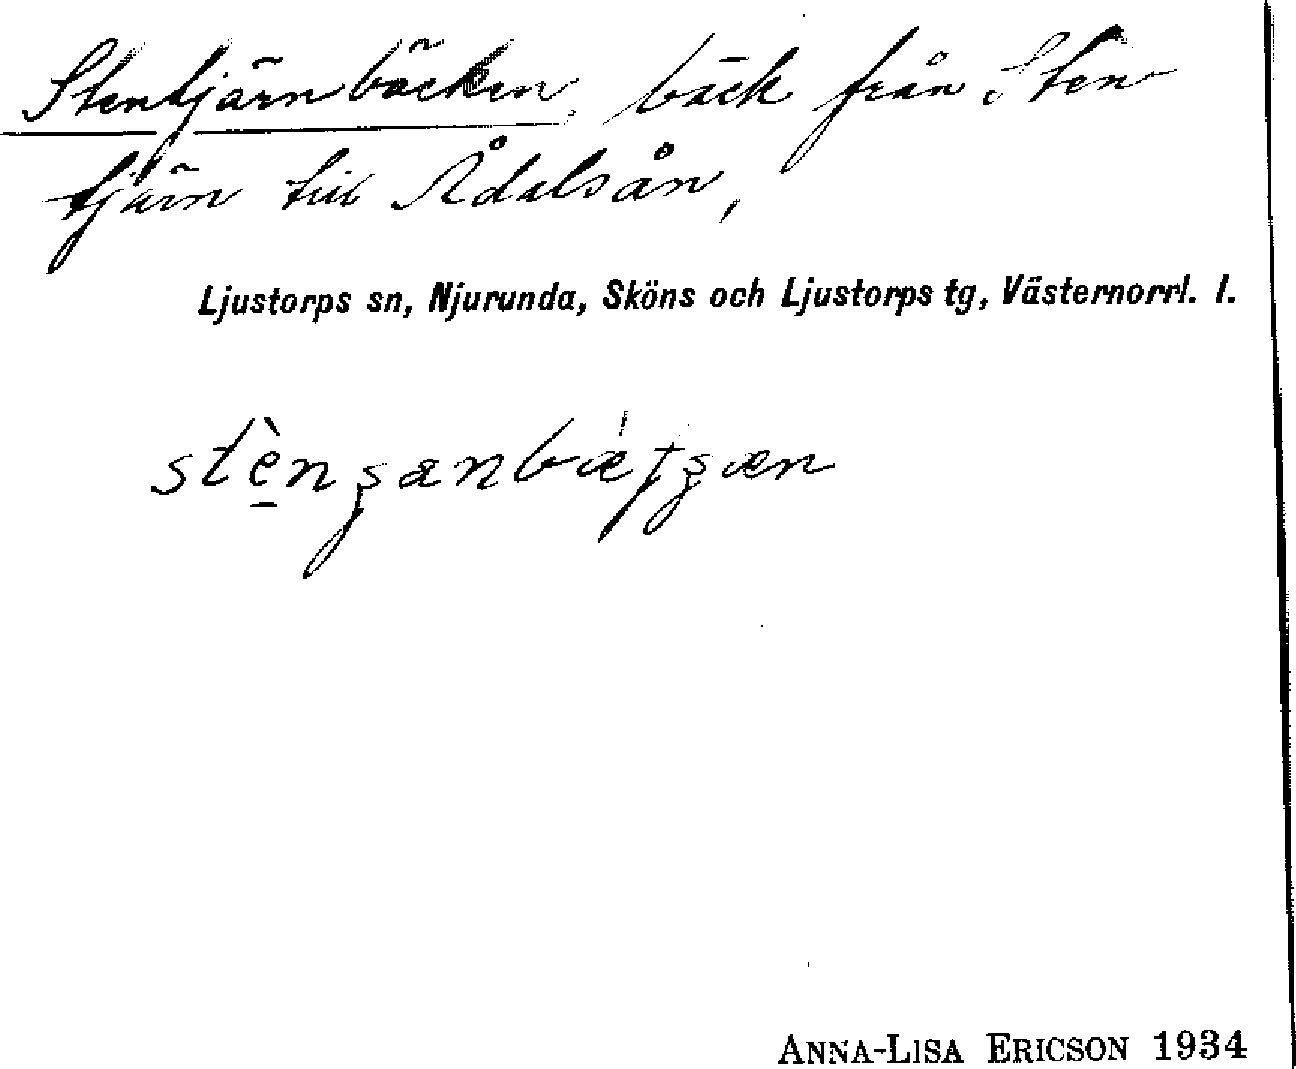 Stentjärnbäcken, bäck från Sten
tjärn till Ådalsån,
Ljustorps sn, Njurunda, Sköns och Ljustorps tg, Västernorrl. l.
ANNA-LISA ERICSON 1934